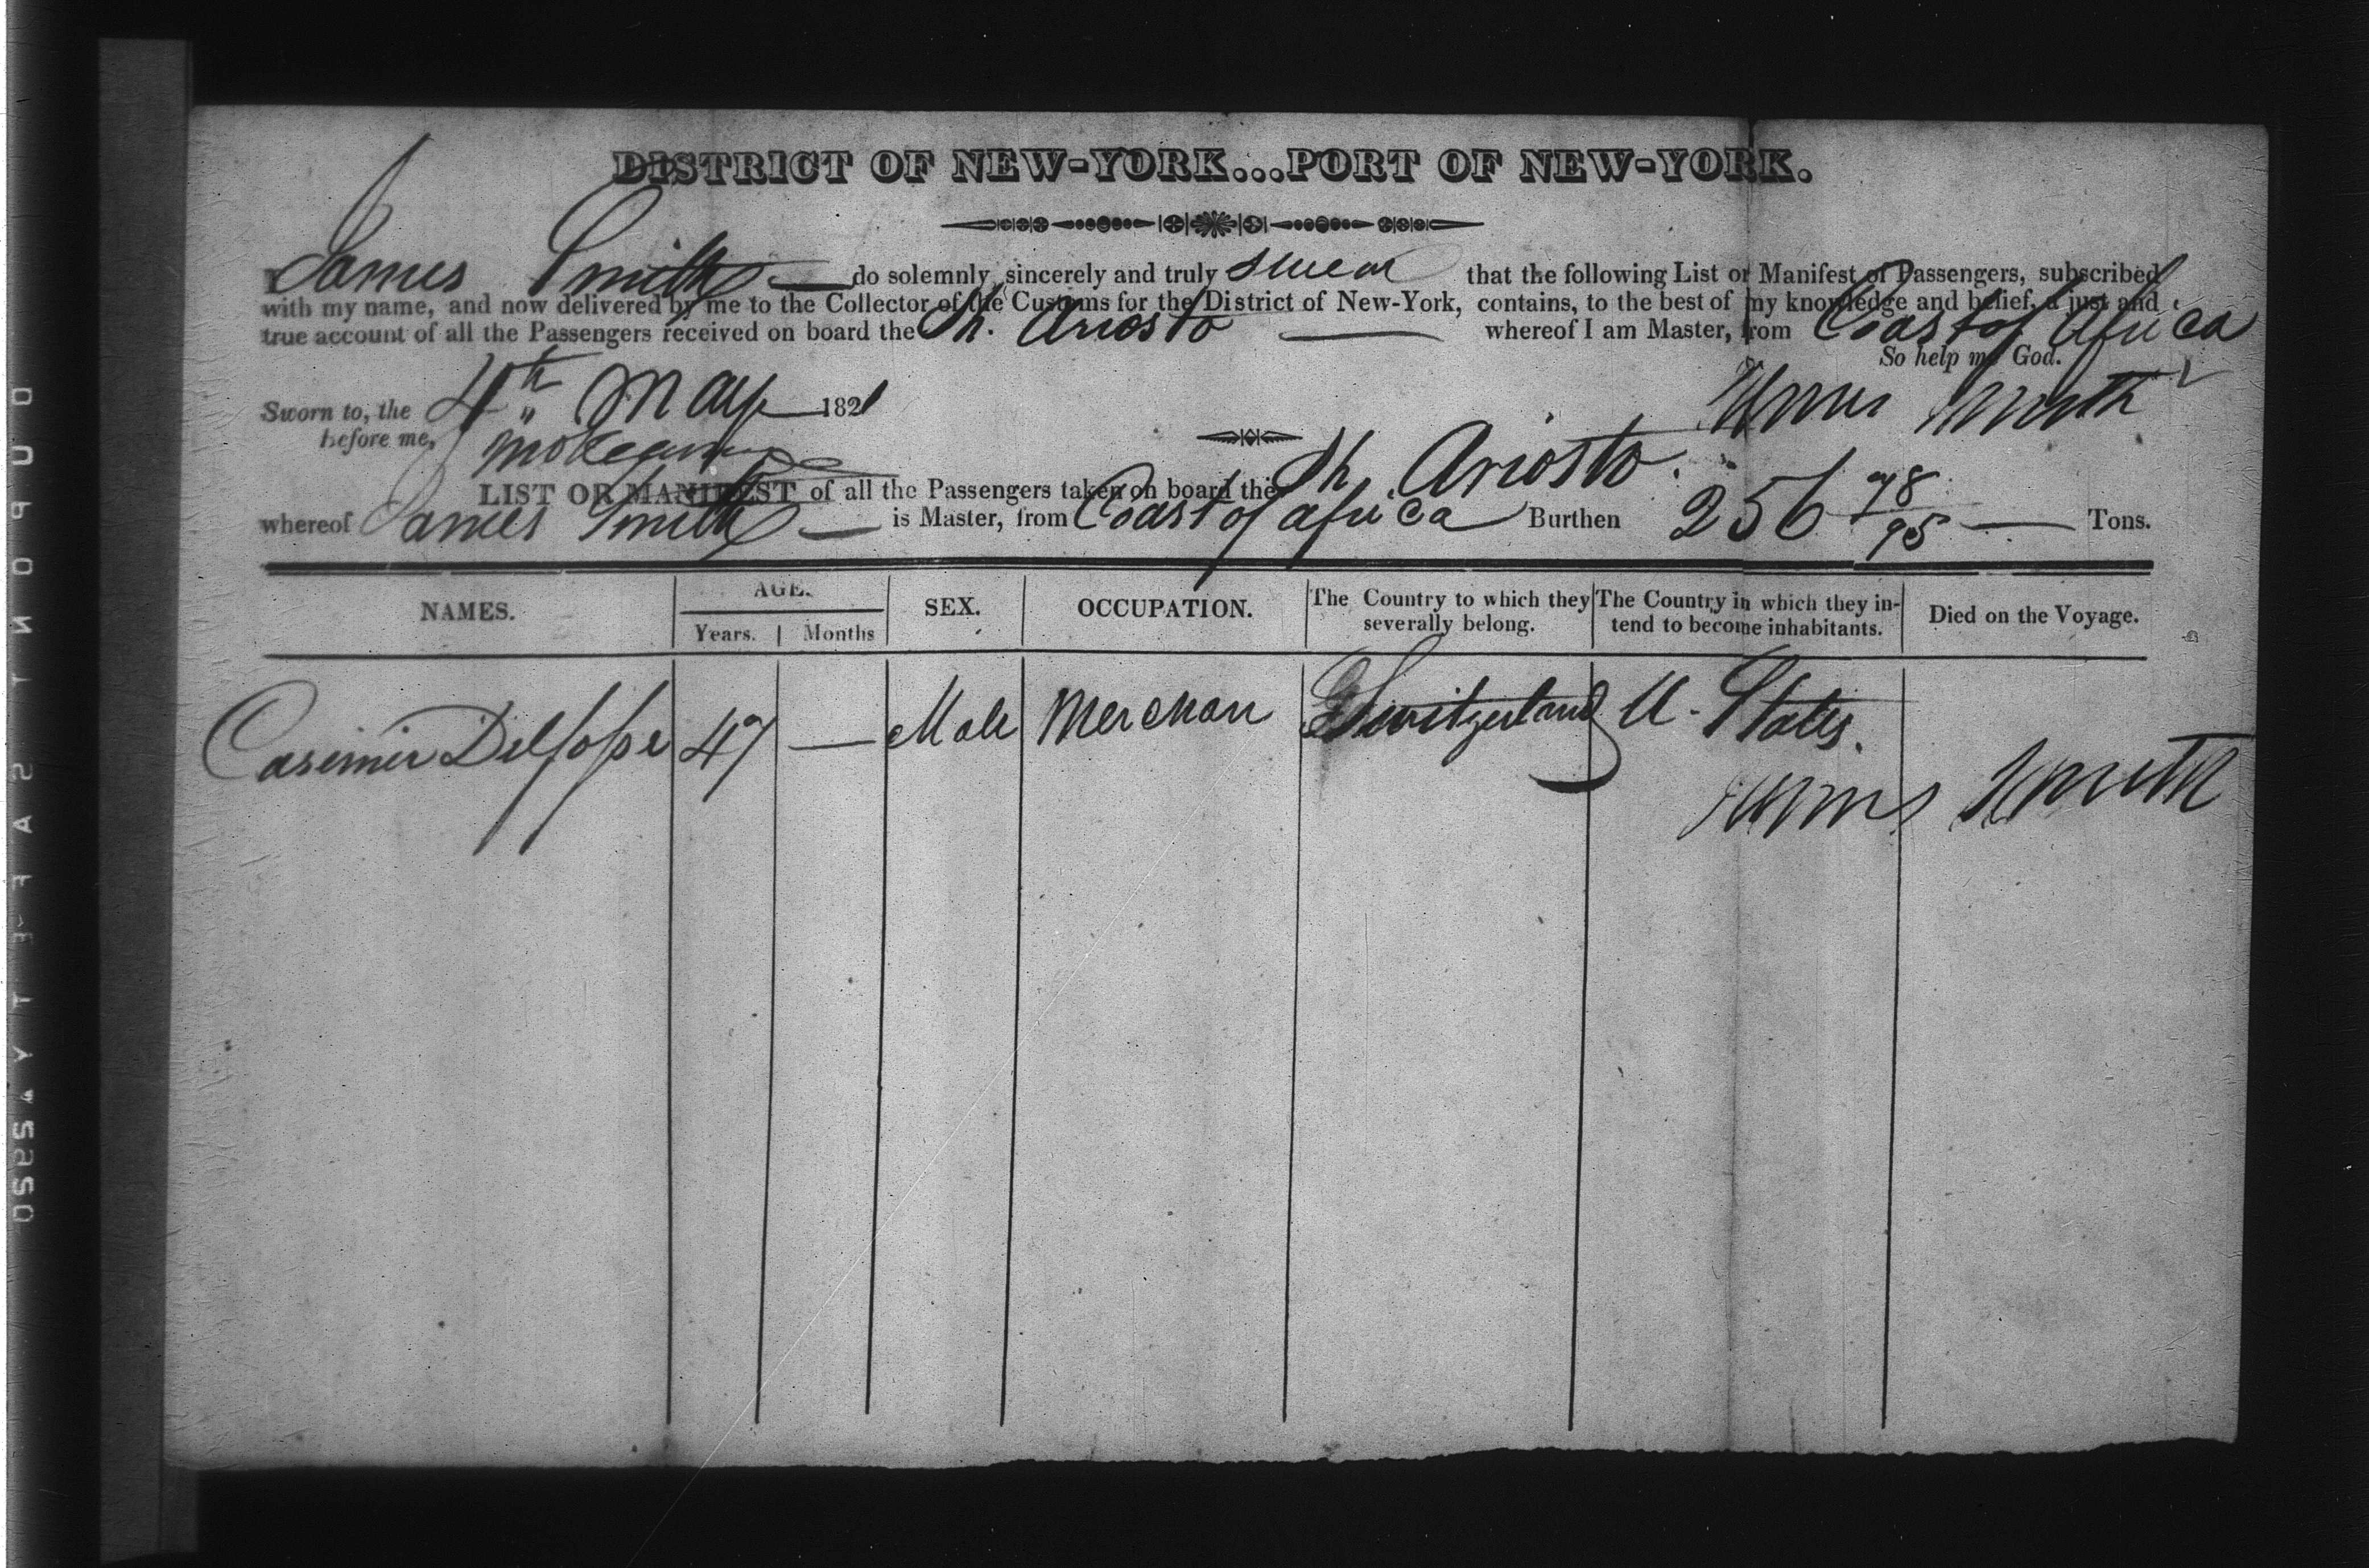 DISTRICT OF NEW-YORK...PORT OF NEW-YORK.
I James Smith do solemnly, sincerely and truly swear that the following List or Manifest of Passengers, subscribed
with my name, and now delivered by me to the Collector of the Customs for the District of New-York, contains, to the best of my knowledge and belief, a just and
true account of all the Passengers received on board the Sh. Ariosto whereof I am Master, from Coast of Africa
So help me God.
Sworn to, the 4th May 1821 James Smith
before me,
LIST OR MANIFEST of all the Passengers taken on board the Sh. Ariosto
whereof James Smith is Master, from Coast of Africa Burthen 256 78/95 Tons.
NAMES. AGE. SEX. OCCUPATION. The Country to which they severally belong. The Country in which they intend to become inhabitants. Died on the Voyage.
Years. Months
Casimir 47 — Male Merchan Switzerland U. States.
James Smith